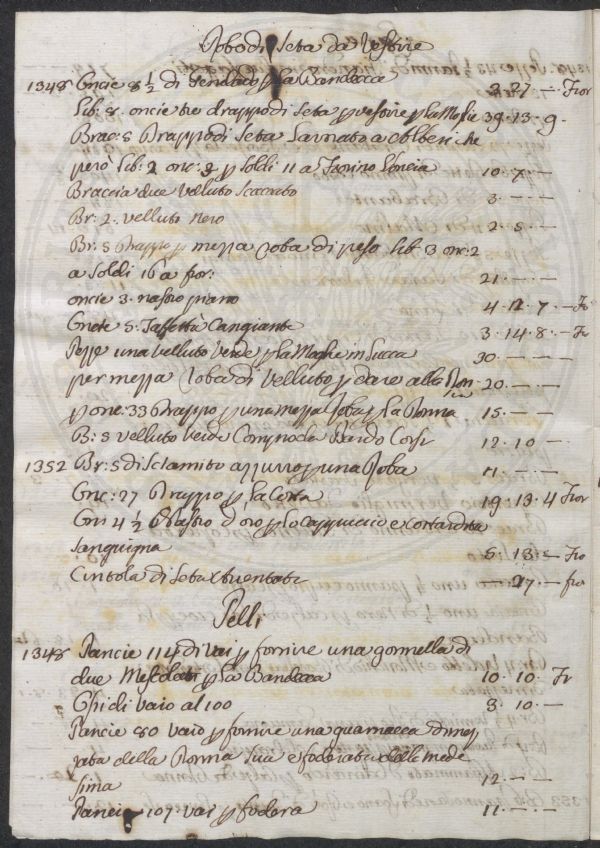 Robe di Seta da Vestire
1348 Oncie 8 1/2 di Zendado p la Bandecca 3·27·— Fior
Lib: 8. oncie tre drappo di Seta p vestire p la Moglie 39·13·9·
Brac: 5 Drappo di Seta Lavorato a Alberi che
pero Lib: 2 onc: 9 p soldi 11 a Fiorino l'oncia 10·7·—
Braccia due velluto Scaccato 3·—·—
Br: 2. velluto nero 2·5·—
Br: 5 Drappo p mezza Roba di peso Lib 3 onc: 2
a soldi 16 a fior: 21·—·—
oncie 3. nastro piano 4·12·7·— Fr
Oncie 5. Taffettà Cangiante 3·14·8·— Fr
Pezze una velluto verde p la Moglie in Lucca 30·—·—
per mezza Roba di Velluto p dare alla Don 20·—·—
p onc: 33 Drappo p una mezza Roba p la Donna 15·—·—
B: 5 velluto verde Comp da Bardo Corsi 12·10·—
1352 B: 5 di Sciamito azzurro p una Roba 11·—·—
Onc: 27 Drappo p la Cotta 19·13·4 Fior
On: 4 1/2 Nastro d'oro p lo cappuccio e
Sanguigna 5·13·— Fio
Cintola di Seta —·27·— fio
Pelli
1348 Pancie 114 di vai p fornire una gonnella di
due Mescolati p la Bandecca 10·10· Fr
di vaio al 100 3·10·—
Pancie 80 vaio p fornire una guarnacca
zata della Donna Sua e foderata delle mede
sima 12·—·—
Pancie 107 vai p fodera 11·—·—